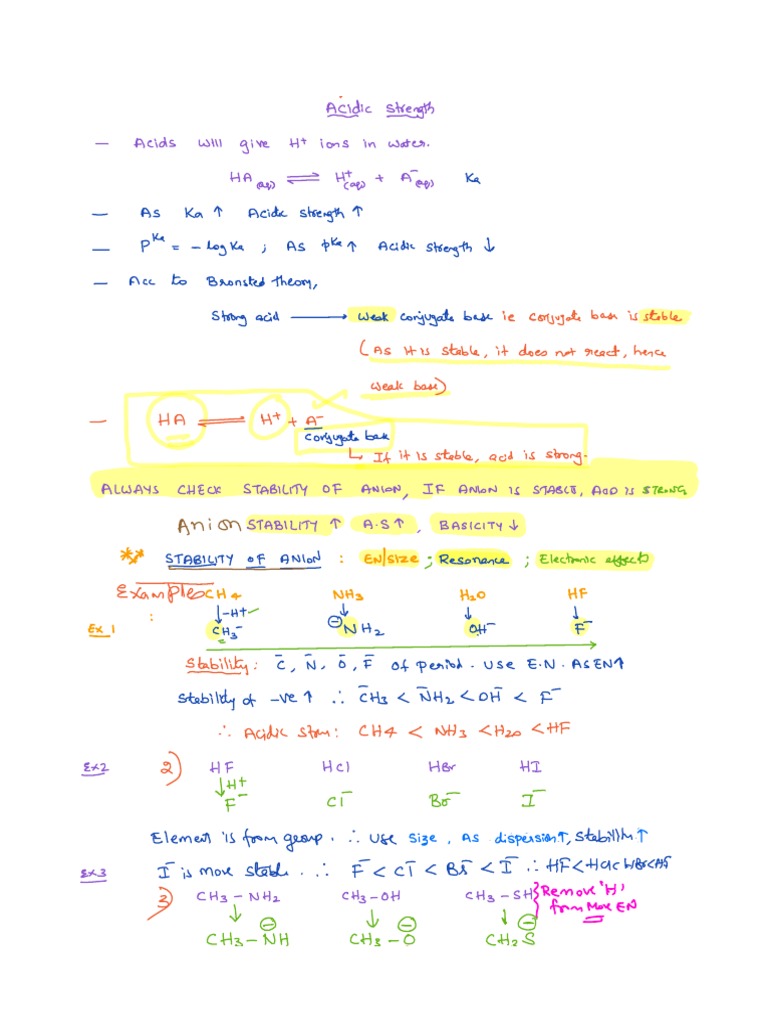 Acidic strength
— Acids will give H⁺ ions in water.
HA(aq) ⇌ H⁺(aq) + A⁻(aq) Ka
— As Ka ↑ Acidic strength ↑
— Pᴷᵃ = - log Ka ; As pᴷᵃ ↑ Acidic strength ↓
— Acc to Bronsted theory,
Strong acid ⟶ weak conjugate base ie conjugate base is stable
(As it is stable, it does not react, hence
weak base)
— HA ⇌ H⁺ + A⁻
conjugate base
↳ If it is stable, acid is strong.
ALWAYS CHECK STABILITY OF ANION, IF ANION IS STABLE, ACID IS STRONG
Anion STABILITY ↑ A.S ↑ , BASICITY ↓
** STABILITY OF ANION : EN/size ; Resonance ; Electronic effects
Examples CH4 NH3 H2O HF
: ↓-H⁺ ↓ ↓ ↓
Ex 1 CH3⁻ ⊖NH2 OH⁻ F⁻
Stability: C̄, N̄, Ō, F̄ of period. Use E.N. As EN↑
Stability of -ve ↑ ∴ C̄H3 < N̄H2 < OH̄ < F⁻
∴ Acidic stren: CH4 < NH3 < H2O < HF
Ex2 2) HF HCl HBr HI
↓H⁺
F⁻ Cl⁻ Br⁻ I⁻
Element is from group. ∴ Use Size, As dispersion↑, Stability ↑
Ex3 I⁻ is more stable. ∴ F⁻ < Cl⁻ < Br⁻ < I⁻ ∴ HF < HCl < HBr < HI
3) CH3 - NH2 CH3 - OH CH3 - SH } Remove 'H'
↓ ↓ ↓ from More EN
CH3 - N⊖H CH3 - O⊖ CH2 S⊖